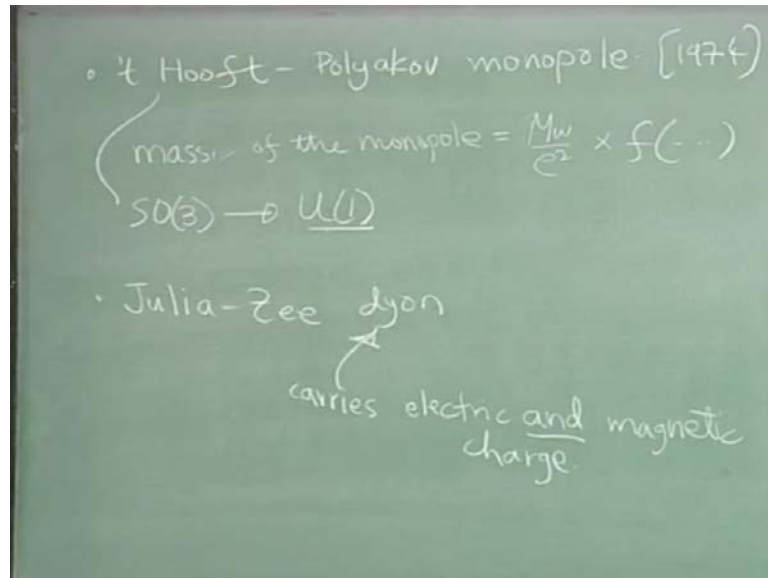 • 't Hooft - Polyakov monopole. [1974)
mass of the monopole = Mw/e² × f(...)
SO(3) → U(1)
• Julia-Zee dyon
carries electric and magnetic
charge.